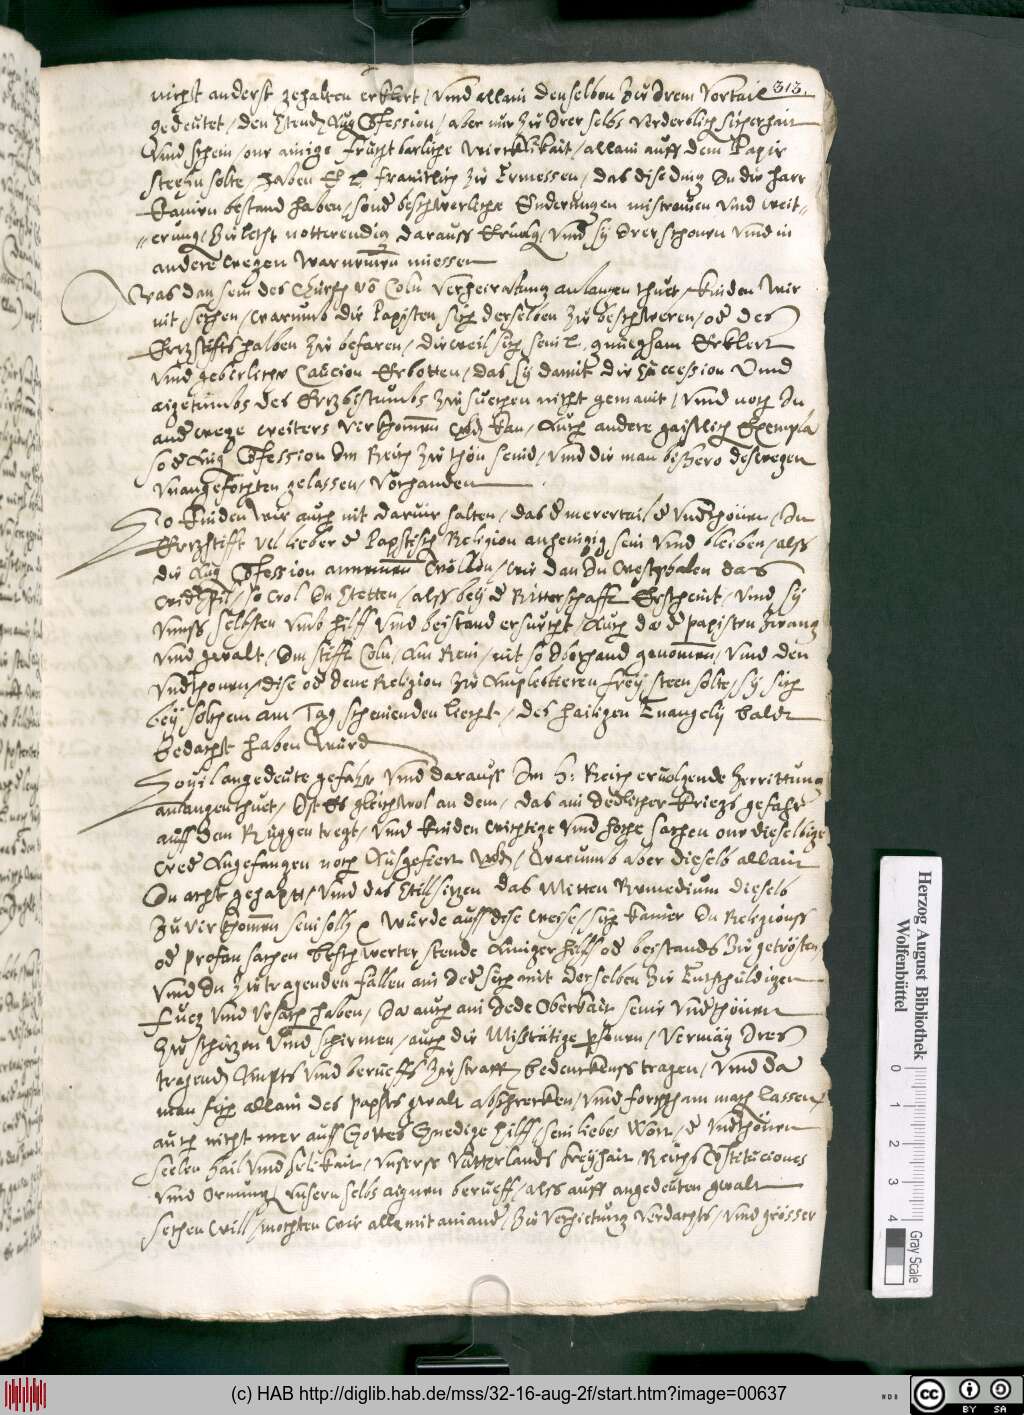 313.
nichst anderst gehalten erklert / vnd allain denselben zu Irem vortail
gedeutet / den Stend Aug Confession / aber nur zu Irer selbs verderblich sicherhait
Vnd schein / one ainige fruchtbarliche wircklikait / allain auff dem Papir
steehn solte / haben E L freuntlich zu Ermessen / das dise ding In die harr
kainen bestand haben / sond beschwerliche Enderungen mistrawen vnd weit-
-erung / zuletst nottwendig darauss ervolg / vnd sy Irer schonen vnd in
andere wegen warnemen miessen
Was dan sein des Churf von Coln verheiratung anlangen thuet / kinden wir
nit sehen / warumb die Papisten sich derselben zu beschweren / od des
Ertzstiffts halben zu befaren / dieweil sich sein L gnuegsam Erklert
vnd geberliche Caucion Erbotten / das sy damit die Succession Vnd
aigetumbs des Ertzbistumbs zu suechen nicht gemaint / vnd noch In
and wege weiters verkhommen werd kan / Auch andere gaistlich Exempla
so d Aug Confession Im Reich zu thon seind / vnd die man bishero deswegen
vnangefochten gelassen / vorhanden
So kinden wir auch nit darvir halten / das d merertail d vnderthonen / Im
Ertzstifft vil lieber d Papstisch Religion anhenigig sein vnd bleiben / alss
die Aug Confession annemen wollen / wie dan In Westphalen das
widerspil / so wol In Stetten / alss bey d Ritterschafft Erscheint / vnd sy
vnnss selbsten vmb hilff vnd beistand ersucht / Auch da d papisten zwang
vnd gwalt / Im stifft Coln / Am Rein / nit so Iberhand genommen / vnd den
vnderthonen / dise od dene Religion zu Amplectieren frey steen solte / sy sich
bey solchem am Tag scheinenden liecht / des hailigen Euangelij baldt
bedacht haben wurd
Souil angedeute gefahr vnd darauss Im H: Reich ervolgende Zerrittung
anlangen thuet / Ist es gleichwol an dem / das ain Iedlicher kriegs gefahr
auff dem Ruggen tregt / vnd kinden wichtige vnd hohe sachen one dieselbige
wed Angefangen noch Aussgefiert werd / Warumb aber dieselb allain
In acht gehapt / vnd das Stillsitzen das Mitten Remedium dieselb
zu verkhommen sein soll / wurde auff dise weise / sich kainer In Religionss
od profan sachen beschwerter stende Ainiger hilff od beistands zu getrosten
vnd In zutragenden fallen ain Ieder sich mit derselben zu Entschuldigen
fueg vnd vrsach haben / Da auch ain Iede Oberkait seine vnderthonen
zu schutzen vnd schirmen / auch die Mistatige personen / vermag Ires
tragend Ampts vnd berueffs zu straffen bedenckens tragen / vnd da
man sich allain des papsts gwalt abschrecken / vnd forchtsam mach lassen
auch nicht mer auff Gottes Gnedige hilff / sein liebes Wort / d vnderthonen
Seelen Hail vnd selikait / vnserss Vatterlands freyhait Reichs Constituciones
vnd Ornung / vnsern selbs aignen berueff / alss auff angedeuten gwalt
sehen will / mochten wir alle mit ainand / zu verhietung verdachts / vnd grosser
Herzog August Bibliothek
Wolfenbüttel
0 1 2 3 4
Gray Scale
(c) HAB http://diglib.hab.de/mss/32-16-aug-2f/start.htm?image=00637
WDB
cc BY SA